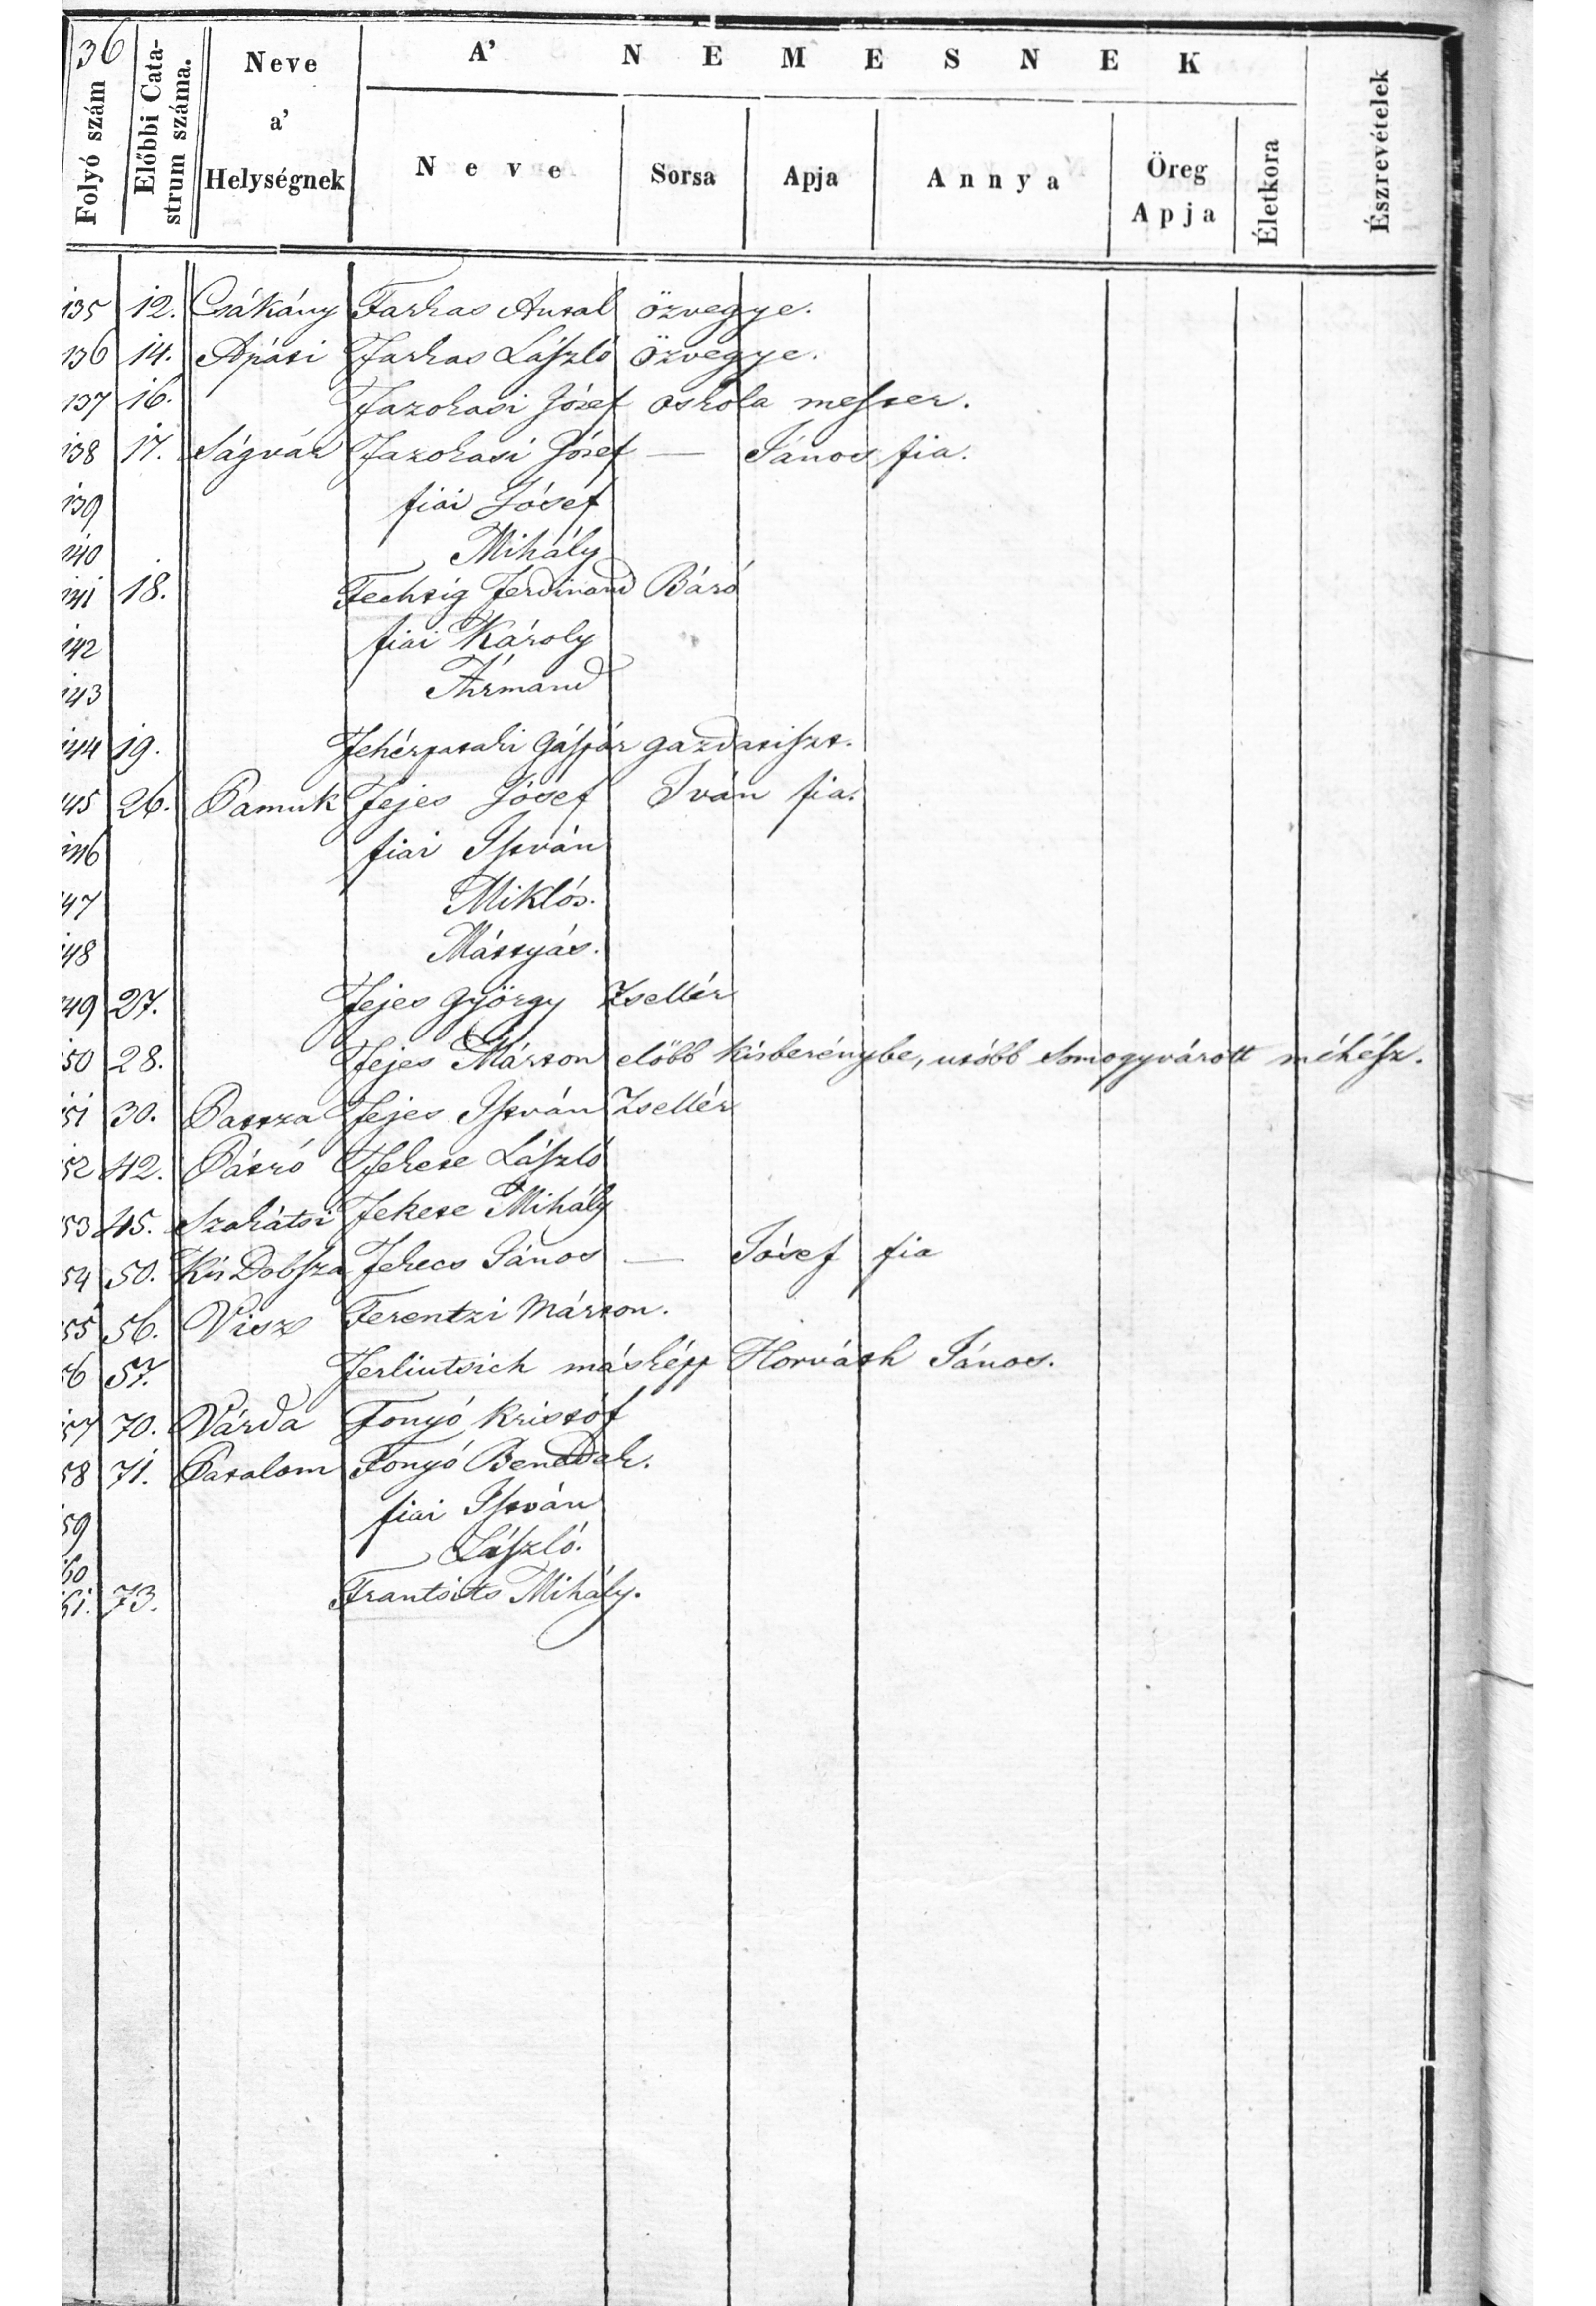 36
A' NEMESNEK
Folyó szám Előbbi Catastrum száma. Neve a' Helységnek Neve Sorsa Apja Annya Öreg Apja Életkora Észrevételek
135 12. Csákány Farkas Antal özvegye.
136 14. Apáti Farkas László özvegye.
137 16. Fazokasi József oskola mester.
138 17. Ságvár Fazokasi József — János fia.
139 fiai Jósef
140 Mihály
141 18. Fechtig Ferdinand Báró
142 fiai Károly
143 Ármand
144 19. Fehérpataki Gáspár gazdatiszt.
145 26. Pamuk Fejes Jósef Iván fia.
146 fiai István
147 Miklós.
148 Mátyás.
149 27. Fejes György Zsellér
150 28. Fejes Márton előbb Kisberénybe, utóbb Somogyvárott méhész.
151 30. Patsza Fejes István Zsellér
152 42. Pátró Fekete László
153 45. Szakátsi Fekete Mihály
154 50. Kis Dobsza Fekecs János — Jósef fia
155 56. Visz Ferentzi Márton.
156 57. Ferliutsich máskép Horváth János.
157 70. Várda Fonyó Kristóf
158 71. Patalom Fonyó Benedek.
159 fiai István
160 László.
161. 73. Frantsits Mihály.